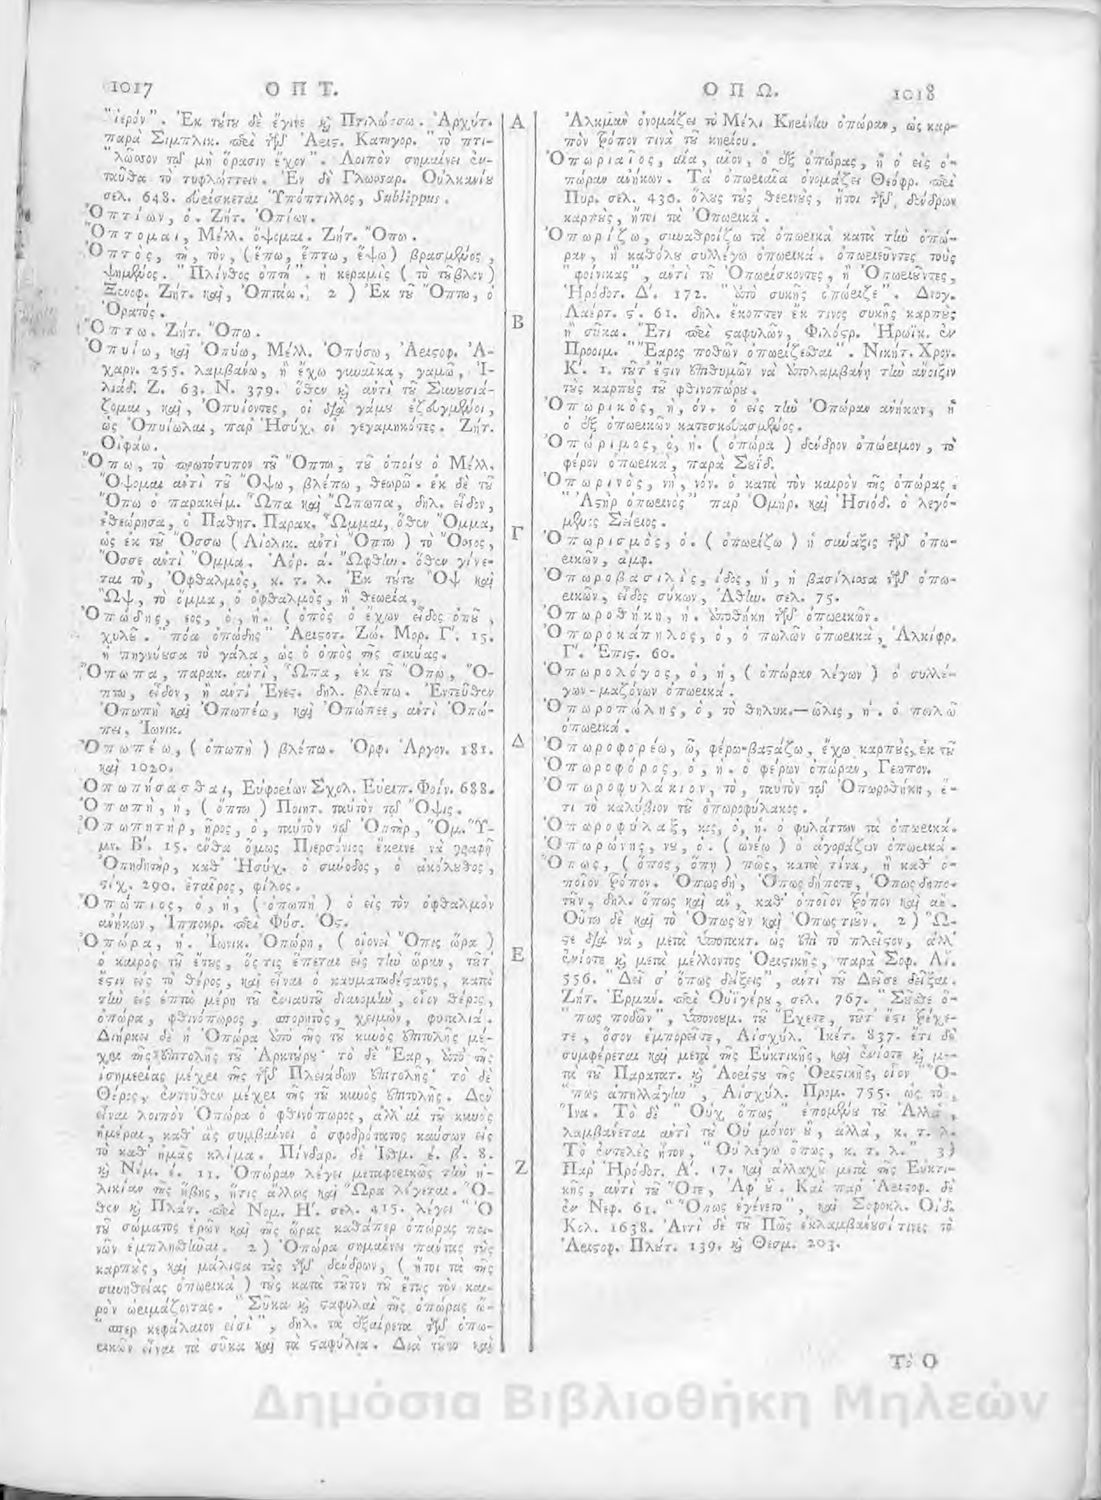 1017 Ο Π Τ.
"ἱερόν". Ἐκ τύτυ δὲ ἔγινε καὶ Πτιλώσσω. Ἀρχύτ.
παρὰ Σιμπλικ. περὶ τῶν Ἀρις. Κατηγορ. "τὸ πτι-
"λῶσσον τῷ μὴ ὅρασιν ἔχον". Λοιπὸν σημαίνει ἐν-
ταῦθα τὸ τυφλώττειν. Ἐν δὲ Γλωσσαρ. Οὐλκανίυ
σελ. 648. εὑρίσκεται Ὑπόπτιλλος, Sublippus.
Ὀπτίων, ὁ. Ζήτ. Ὀπίων.
Ὄπτομαι, Μέλλ. ὄψομαι. Ζήτ. Ὄπω.
Ὀπτὸς, τὴ, τὸν, (ἕπω, ἕπτω, ἕψω) βρασμένος,
ψημένος. "Πλίνθος ὀπτὴ". ἢ κεραμὶς (τὸ τῦβλον)
Ξενοφ. Ζήτ. καὶ, Ὀπτάω. 2) Ἐκ τῦ Ὄπτω, ὁ
Ὁρατός.
Ὄπτω. Ζήτ. Ὄπω.
Ὀπυίω, καὶ Ὀπύω, Μέλλ. Ὀπύσω, Ἀριςοφ. Ἀ-
χαρν. 255. λαμβάνω, ἢ ἔχω γυναῖκα, γαμῶ, Ἰ-
λιάδ. Ζ. 63. Ν. 379. ὅθεν καὶ αὐτὶ τῦ Συνυσιά-
ζομαι, καὶ, Ὀπυίοντες, οἱ διὰ γάμυ ἐζευγμένοι,
ὡς Ὀπυίωλαι, παρ' Ἡσύχ. οἱ γεγαμηκότες. Ζήτ.
Οἰφάω.
Ὄπω, τὸ πρωτότυπον τῦ Ὄπτω, τῦ ὁποίυ ὁ Μέλλ.
Ὄψομαι αὐτὶ τῦ Ὄψω, βλέπω, θεωρῶ. ἐκ δὲ τῦ
Ὄπω ὁ παρακείμ. Ὦπα καὶ Ὄπωπα, δηλ. εἶδον,
ἐθεώρησα, ὁ Παθητ. Παρακ. Ὦμμαι, ὅθεν Ὄμμα,
ὡς ἐκ τῦ Ὄσσω (Αἰολικ. αὐτὶ Ὄπτω) τὸ Ὄσσος,
Ὄσσε αὐτὶ Ὄμμα. Ἀόρ. ά. Ὤφθην. ὅθεν γίνε-
ται τὸ, Ὀφθαλμὸς, κ. τ. λ. Ἐκ τύτυ Ὂψ καὶ
Ὢψ, τὸ ὄμμα, ὁ ὀφθαλμὸς, ἢ θεωρία.
Ὀπώδης, εος, ὁ, ἡ. (ὀπὸς) ὁ ἔχων εἶδος ὀπῦ,
χυλῦ. "πόα ὀπώδης" Ἀριςοτ. Ζώ. Μορ. Γ'. 15.
ἡ πηγνύυσα τὸ γάλα, ὡς ὁ ὀπὸς τῆς σικύας.
Ὄπωπα, παρακ. αὐτὶ, Ὦπα, ἐκ τῦ Ὄπω, Ὄ-
πτω, εἶδον, ἢ αὐτὶ Ἐνες. δηλ. βλέπω. Ἐντεῦθεν
Ὀπωπὴ καὶ Ὀπωπέω, καὶ Ὀπώπεε, αὐτὶ Ὀπώ-
πει, Ἰωνικ.
Ὀπωπέω, (ὀπωπὴ) βλέπω. Ὀρφ. Ἀργον. 181.
καὶ 1020.
Ὀπωπήσασθαι, Εὐφορίων Σχολ. Εὐριπ. Φοίν. 688.
Ὀπωπὴ, ἡ, (ὄπτω) Ποιητ. ταὐτὸν τῷ Ὄψις.
Ὀπωπητὴρ, ῆρος, ὁ, ταὐτὸν τῷ Ὀπτὴρ, Ὁμ. Ὕ-
μν. Β'. 15. ἔνθα ὅμως Πιερσόνιος ἔκρινε νὰ γραφῇ
Ὀπηδητὴρ, καθ' Ἡσύχ. ὁ σύνοδος, ὁ ἀκόλυθος,
ςίχ. 290. ἑταῖρος, φίλος.
Ὀπώπιος, ὁ, ἡ, (ὀπωπὴ) ὁ εἰς τὸν ὀφθαλμὸν
ἀνήκων, Ἱπποκρ. περὶ Φύσ. Ὀς.
Ὀπώρα, ἡ. Ἰωνικ. Ὀπώρη, (οἱονεὶ Ὄπις ὥρα)
ὁ καιρὸς τῦ ἔτυς, ὅςτις ἕπεται εἰς τὴν ὥραν, τῦτ'
ἔςιν εἰς τὸ θέρος, καὶ εἶναι ὁ καυματωδέςατος, κατὰ
τὴν εἰς ἑπτὰ μέρη τῦ ἐνιαυτῦ διανομὴν, οἷον θέρος,
ὀπώρα, φθινόπωρος, σπορητὸς, χειμὼν, φυταλιά.
Διήρκει δὲ ἡ Ὀπώρα ἀπὸ τῆς τῦ κυνὸς ἐπιτολῆς μέ-
χρι τῆς ἐπιτολῆς τῦ Ἀρκτύρυ· τὸ δὲ Ἔαρ, ἀπὸ τῆς
ἰσημερίας μέχρι τῆς τῶν Πλειάδων ἐπιτολῆς· τὸ δὲ
Θέρος, ἐντεῦθεν μέχρι τῆς τῦ κυνὸς ἐπιτολῆς. Δὲν
εἶναι λοιπὸν Ὀπώρα ὁ φθινόπωρος, ἀλλ' αἱ τῦ κυνὸς
ἡμέραι, καθ' ἃς συμβαίνει ὁ σφοδρότατος καύσων εἰς
τὸ καθ' ἡμᾶς κλίμα. Πίνδαρ. δὲ Ἰσθμ. έ. β'. 8.
καὶ Νεμ. έ. 11. Ὀπώραν λέγει μεταφορικῶς τὴν ἡ-
λικίαν τῆς ἥβης, ἥτις ἄλλως καὶ Ὥρα λέγεται. Ὅ-
θεν καὶ Πλάτ. περὶ Νομ. Η'. σελ. 415. λέγει "Ὁ
τῦ σώματος ἐρῶν καὶ τῆς ὥρας καθάπερ ὀπώρας πει-
νῶν ἐμπλησθῆναι. 2) Ὀπώρα σημαίνει πάντας τὺς
καρπὺς, καὶ μάλιςα τὺς τῶν δένδρων, (ἤτοι τὰ τῆς
συνηθείας ὀπωρικὰ) τὺς κατὰ τῦτον τῦ ἔτυς τὸν και-
ρὸν ὡριμάζοντας. "Σῦκα καὶ ςαφυλαὶ τῆς ὀπώρας ὥ-
"σπερ κεφάλαιον εἰσὶ", δηλ. τὰ ἐξαίρετα τῶν ὀπω-
ρικῶν εἶναι τὰ σῦκα καὶ τὰ ςαφύλια. Διὰ τῦτο καὶ
Α
Β
Γ
Δ
Ε
Ζ
Ο Π Ω. 1018
Ἀλκμὰν ὀνομάζει τὸ Μέλι Κηρίνην ὀπώραν, ὡς καρ-
πὸν τρόπον τινὰ τῦ κηρίου.
Ὀπωριαῖος, αία, αῖον, ὁ ἐξ ὀπώρας, ἢ ὁ εἰς ὀ-
πώραν ἀνήκων. Τὰ ὀπωριαῖα ὀνομάζει Θεόφρ. περὶ
Πυρ. σελ. 430. ὅλυς τὺς θερινὺς, ἤτοι τῶν δένδρων
καρπὺς, ἤτοι τὰ Ὀπωρικά.
Ὀπωρίζω, συναθροίζω τὰ ὀπωρικὰ κατὰ τὴν ὀπώ-
ραν, ἢ καθόλυ συλλέγω ὀπωρικά. ὀπωριεῦντες τοὺς
"φοίνικας", αὐτὶ τῦ Ὀπωρίσκοντες, ἢ Ὀπωριῦντες,
Ἡρόδοτ. Δ'. 172. "ἀπὸ συκῆς ὀπώριζε". Διογ.
Λαέρτ. ς'. 61. δηλ. ἔκοπτεν ἐκ τινος συκῆς καρπὺς
ἢ σῦκα. Ἔτι περὶ ςαφυλῶν, Φιλόςρ. Ἡρωϊκ. ἐν
Προοιμ. "Ἔαρος ποθῶν ὀπωρίζεσθαι". Νικητ. Χρον.
Κ'. 1. τῦτ' ἔςιν ἐπιθυμῶν νὰ ἀπολαμβάνῃ τὴν ἄνοιξιν
τὺς καρπὺς τῦ φθινοπώρυ.
Ὀπωρικὸς, ὴ, ὸν. ὁ εἰς τὴν Ὀπώραν ἀνήκων, ἢ
ὁ ἐξ ὀπωρικῶν κατεσκευασμένος.
Ὀπώριμος, ὁ, ἡ. (ὀπώρα) δένδρον ὀπώριμον, τὸ
φέρον ὀπωρικὰ, παρὰ Συΐδ.
Ὀπωρινὸς, νὴ, νόν. ὁ κατὰ τὸν καιρὸν τῆς ὀπώρας.
"Ἀςὴρ ὀπωρινὸς" παρ' Ὁμήρ. καὶ Ἡσιόδ. ὁ λεγό-
μενος Σείριος.
Ὀπωρισμὸς, ὁ. (ὀπωρίζω) ἡ σύναξις τῶν ὀπω-
ρικῶν, ἀμφ.
Ὀπωροβασιλὶς, ίδος, ἡ, ἡ βασίλισσα τῶν ὀπω-
ρικῶν, εἶδος σύκων, Ἀθήν. σελ. 75.
Ὀπωροθήκη, ἡ. ἀποθήκη τῶν ὀπωρικῶν.
Ὀπωροκάπηλος, ὁ, ὁ πωλῶν ὀπωρικὰ, Ἀλκίφρ.
Γ'. Ἐπις. 60.
Ὀπωρολόγος, ὁ, ἡ, (ὀπώραν λέγων) ὁ συλλέ-
γων-μαζόνων ὀπωρικά.
Ὀπωροπώλης, ὁ, τὸ θηλυκ.—ῶλις, ἡ. ὁ πωλῶν
ὀπωρικά.
Ὀπωροφορέω, ῶ, φέρω-βαςάζω, ἔχω καρπὺς, ἐκ τῦ
Ὀπωροφόρος, ὁ, ἡ. ὁ φέρων ὀπώραν, Γεωπον.
Ὀπωροφυλάκιον, τὸ, ταὐτὸν τῷ Ὀπωροθήκη, ἔ-
τι τὸ καλύβιον τῦ ὀπωροφύλακος.
Ὀπωροφύλαξ, κος, ὁ, ἡ. ὁ φυλάττων τὰ ὀπωρικά.
Ὀπωρώνης, νυ, ὁ. (ὠνέω) ὁ ἀγοράζων ὀπωρικά.
Ὅπως, (ὅπος, ὅπη) πῶς, κατὰ τίνα, ἢ καθ' ὁ-
ποῖον τρόπον. Ὅπως δὴ, Ὅπως δήποτε, Ὅπως δηπο-
τῦν, δηλ. ὅπως καὶ ἂν, καθ' ὁποῖον τρόπον καὶ ἄν.
Οὕτω δὲ καὶ τὸ Ὅπως ῦν καὶ Ὅπως τιῦν. 2) Ὥ-
ςε διὰ νὰ, μετὰ ὑποτακτ. ὡς ἐπὶ τὸ πλεῖςον, ἀλλ'
ἐνίοτε καὶ μετὰ μέλλοντος Ὁριςικῆς, παρὰ Σοφ. Αἴ.
556. "Δεῖ σ' ὅπως δείξεις", αὐτὶ τῦ Δεῖσε δεῖξαι.
Ζήτ. Ἑρμάν. περὶ Οὐϊγέρυ, σελ. 767. Σῦσθε ὅ-
"πως ποδῶν", ὑπονουμ. τῦ Ἔχετε, τῦτ' ἔςι τρέχε-
τε, ὅσον ἐμπορεῖτε, Αἰσχύλ. Ἱκέτ. 837. ἔτι δὲ
συμφέρεται καὶ μετὰ τῆς Εὐκτικῆς, καὶ ἐνίοτε καὶ με-
τὰ τῦ Παρατατ. καὶ Ἀορίςυ τῆς Ὁριςικῆς, οἷον "Ὅ-
"πως ἀπηλλάγην", Αἰσχύλ. Προμ. 755. ὡς τὸ,
Ἵνα. Τὸ δὲ "Οὐχ ὅπως" ἑπομένυ τῦ Ἀλλὰ,
λαμβάνεται αὐτὶ τῦ Οὐ μόνον ῦ, ἀλλὰ, κ. τ. λ.
Τὸ ἐντελὲς ἦτον, "Οὐ λέγω ὅπως, κ. τ. λ." 3)
Παρ' Ἡροδότ. Α'. 17. καὶ ἀλλαχῦ μετὰ τῆς Εὐκτι-
κῆς, αὐτὶ τῦ Ὅτε, Ἀφ' ῦ. Καὶ παρ' Ἀριςοφ. δὲ
ἐν Νεφ. 61. "Ὅπως ἐγένετο", καὶ Σοφοκλ. Οἰδ.
Κολ. 1638. Ἀντὶ δὲ τῦ Πῶς ἐκλαμβάνυσί τινες τὸ
Ἀριςοφ. Πλύτ. 139. καὶ Θεσμ. 203.
Τὸ Ο
Δημόσια Βιβλιοθήκη Μηλεών